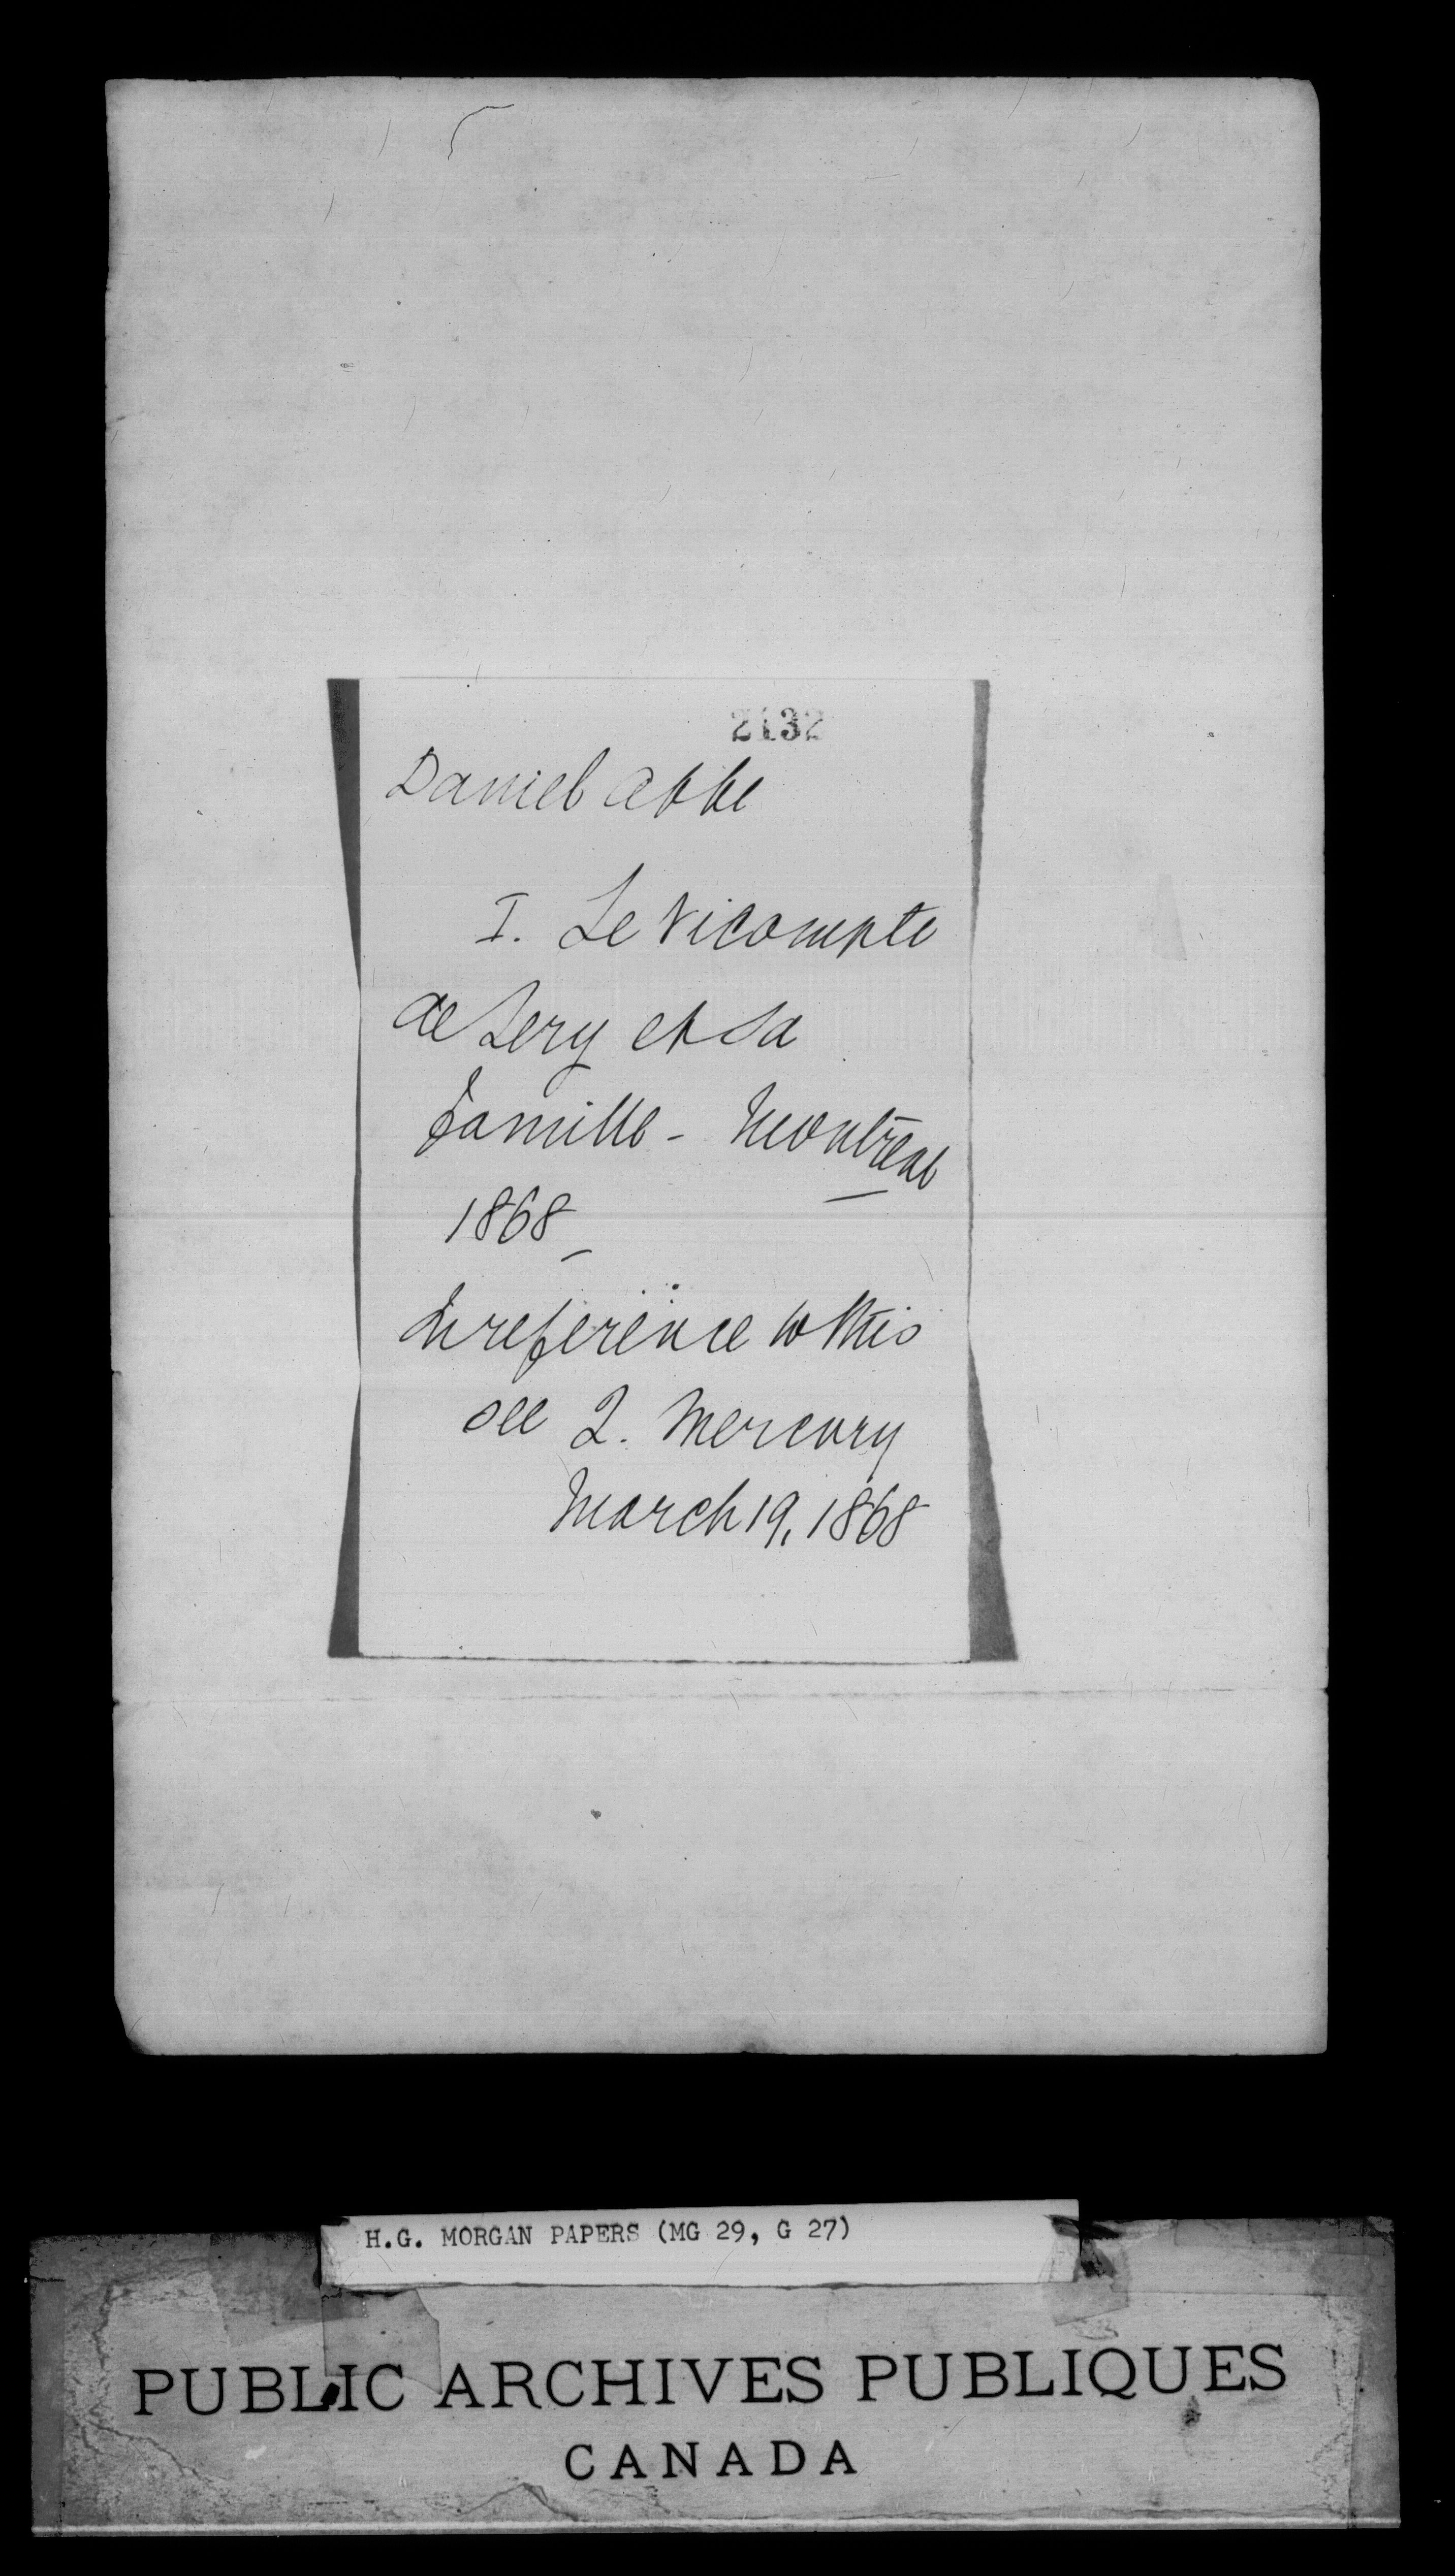 2132
Daniel Abbe
I. Le Vicompte
de Lery et sa
famille - Montreal
1868 -
In reference to this
see Q. Mercury
March 19, 1868
H.G. MORGAN PAPERS (MG 29, G 27)
PUBLIC ARCHIVES PUBLIQUES
CANADA